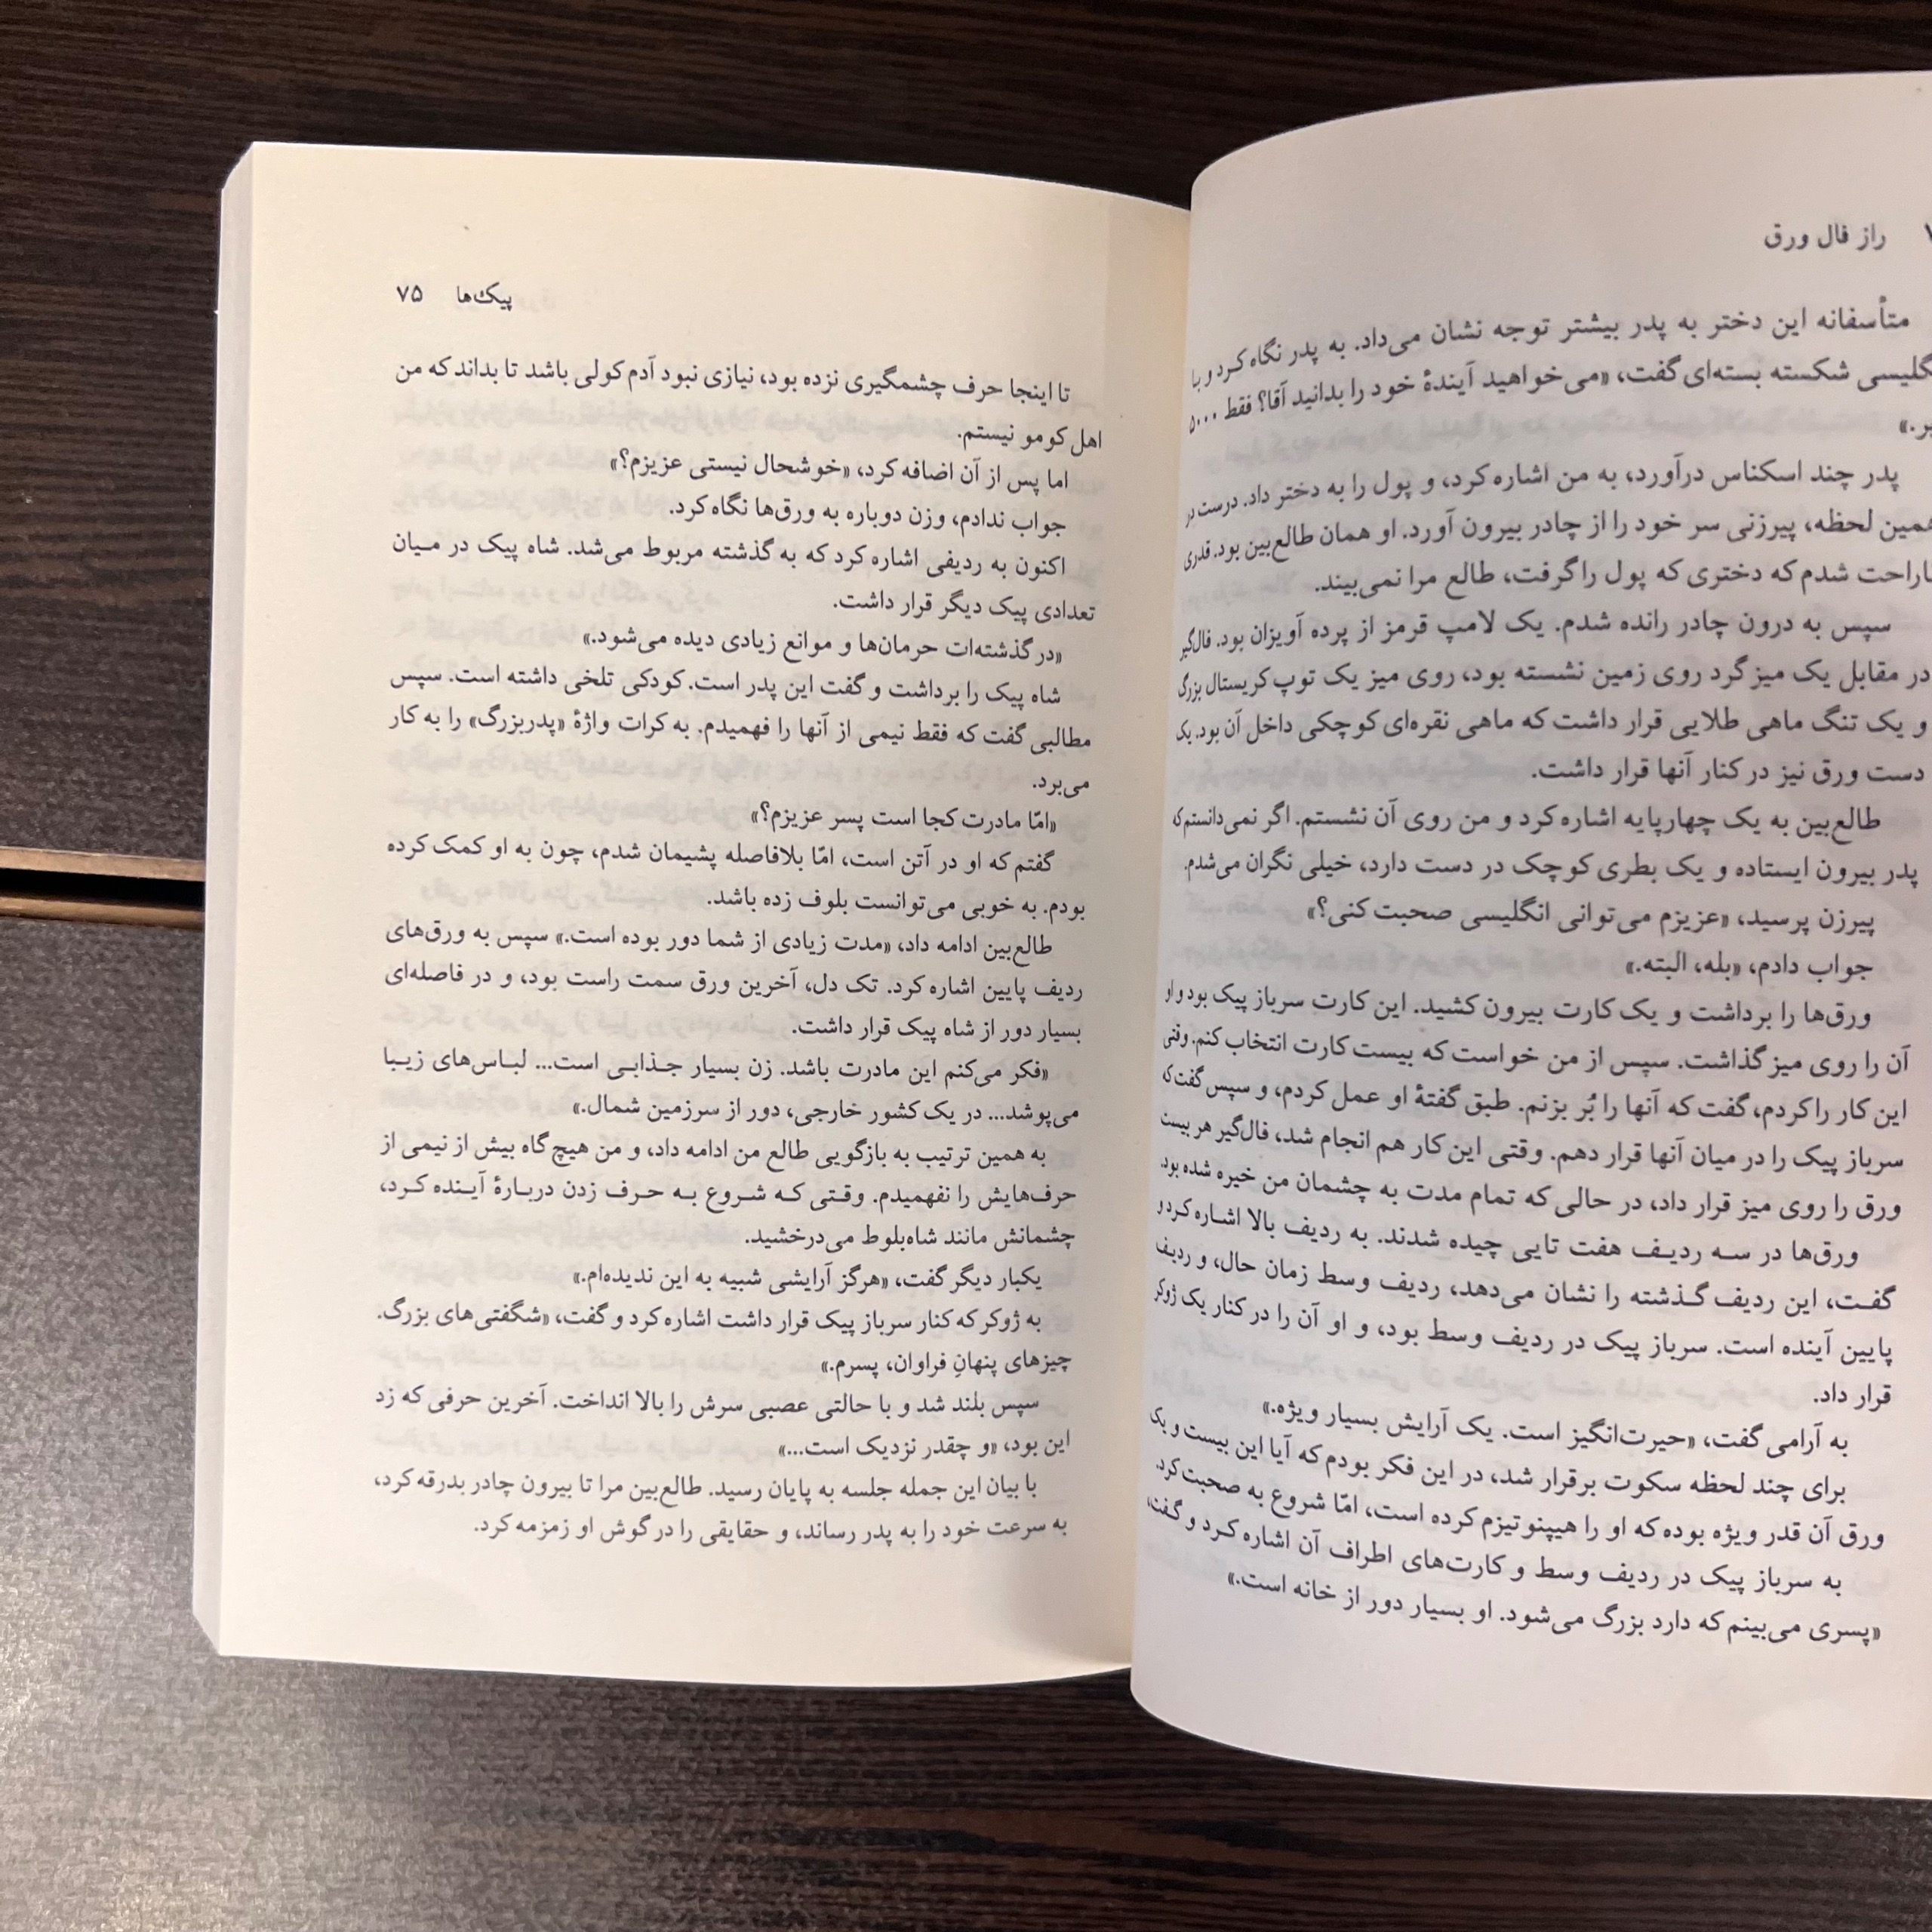 راز فال ورق
متأسفانه این دختر به پدر بیشتر توجه نشان می‌داد. به پدر نگاه کرد و با
شکسته بسته‌ای گفت، «می‌خواهید آیندهٔ خود را بدانید آقا؟ فقط ۵۰۰۰
پدر چند اسکناس درآورد، به من اشاره کرد، و پول را به دختر داد. درست در
همین لحظه، پیرزنی سر خود را از چادر بیرون آورد. او همان طالع‌بین بود. قدری
ناراحت شدم که دختری که پول را گرفت، طالع مرا نمی‌بیند.
سپس به درون چادر رانده شدم. یک لامپ قرمز از پرده آویزان بود. فال‌گیر
در مقابل یک میز گرد روی زمین نشسته بود، روی میز یک توپ کریستال بزرگ
و یک تنگ ماهی طلایی قرار داشت که ماهی نقره‌ای کوچکی داخل آن بود. یک
دست ورق نیز در کنار آنها قرار داشت.
طالع‌بین به یک چهارپایه اشاره کرد و من روی آن نشستم. اگر نمی‌دانستم که
پدر بیرون ایستاده و یک بطری کوچک در دست دارد، خیلی نگران می‌شدم.
پیرزن پرسید، «عزیزم می‌توانی انگلیسی صحبت کنی؟»
جواب دادم، «بله، البته.»
ورق‌ها را برداشت و یک کارت بیرون کشید. این کارت سرباز پیک بود و او
آن را روی میز گذاشت. سپس از من خواست که بیست کارت انتخاب کنم. وقتی
این کار را کردم، گفت که آنها را بُر بزنم. طبق گفتهٔ او عمل کردم، و سپس گفت که
سرباز پیک را در میان آنها قرار دهم. وقتی این کار هم انجام شد، فال‌گیر هر بیست
ورق را روی میز قرار داد، در حالی که تمام مدت به چشمان من خیره شده بود.
ورق‌ها در سه ردیف هفت تایی چیده شدند. به ردیف بالا اشاره کرد و
گفت، این ردیف گذشته را نشان می‌دهد، ردیف وسط زمان حال، و ردیف
پایین آینده است. سرباز پیک در ردیف وسط بود، و او آن را در کنار یک ژوکر
قرار داد.
به آرامی گفت، «حیرت‌انگیز است. یک آرایش بسیار ویژه.»
برای چند لحظه سکوت برقرار شد، در این فکر بودم که آیا این بیست و یک
ورق آن قدر ویژه بوده که او را هیپنوتیزم کرده است، امّا شروع به صحبت کرد.
به سرباز پیک در ردیف وسط و کارت‌های اطراف آن اشاره کرد و گفت،
«پسری می‌بینم که دارد بزرگ می‌شود. او بسیار دور از خانه است.»
پیک‌ها ۷۵
تا اینجا حرف چشمگیری نزده بود، نیازی نبود آدم کولی باشد تا بداند که من
اهل کومو نیستم.
اما پس از آن اضافه کرد، «خوشحال نیستی عزیزم؟»
جواب ندادم، وزن دوباره به ورق‌ها نگاه کرد.
اکنون به ردیفی اشاره کرد که به گذشته مربوط می‌شد. شاه پیک در میان
تعدادی پیک دیگر قرار داشت.
«در گذشته‌ات حرمان‌ها و موانع زیادی دیده می‌شود.»
شاه پیک را برداشت و گفت این پدر است. کودکی تلخی داشته است. سپس
مطالبی گفت که فقط نیمی از آنها را فهمیدم. به کرات واژهٔ «پدربزرگ» را به کار
می‌برد.
«امّا مادرت کجا است پسر عزیزم؟»
گفتم که او در آتن است، امّا بلافاصله پشیمان شدم، چون به او کمک کرده
بودم. به خوبی می‌توانست بلوف زده باشد.
طالع‌بین ادامه داد، «مدت زیادی از شما دور بوده است.» سپس به ورق‌های
ردیف پایین اشاره کرد. تک دل، آخرین ورق سمت راست بود، و در فاصله‌ای
بسیار دور از شاه پیک قرار داشت.
«فکر می‌کنم این مادرت باشد. زن بسیار جذابی است... لباس‌های زیبا
می‌پوشد... در یک کشور خارجی، دور از سرزمین شمال.»
به همین ترتیب به بازگویی طالع من ادامه داد، و من هیچ گاه بیش از نیمی از
حرف‌هایش را نفهمیدم. وقتی که شروع به حرف زدن دربارهٔ آینده کرد،
چشمانش مانند شاه‌بلوط می‌درخشید.
یکبار دیگر گفت، «هرگز آرایشی شبیه به این ندیده‌ام.»
به ژوکر که کنار سرباز پیک قرار داشت اشاره کرد و گفت، «شگفتی‌های بزرگ.
چیزهای پنهانِ فراوان، پسرم.»
سپس بلند شد و با حالتی عصبی سرش را بالا انداخت. آخرین حرفی که زد
این بود، «و چقدر نزدیک است...»
با بیان این جمله جلسه به پایان رسید. طالع‌بین مرا تا بیرون چادر بدرقه کرد،
به سرعت خود را به پدر رساند، و حقایقی را در گوش او زمزمه کرد.